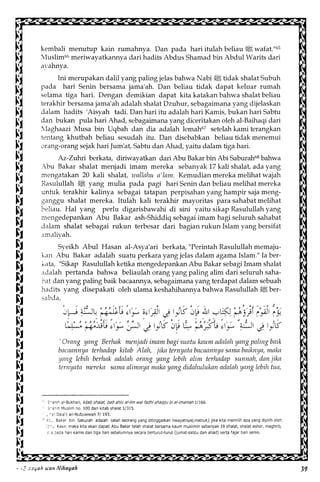 kembali menutup kain rumahnya. Dan pada hari itulah beliau ﷺ wafat."⁶⁵
Muslim⁶⁶ meriwayatkannya dari hadits Abdus Shamad bin Abdul Warits dari
ayahnya.
Ini merupakan dalil yang paling jelas bahwa Nabi ﷺ tidak shalat Subuh
pada hari Senin bersama jama'ah. Dan beliau tidak dapat keluar rumah
selama tiga hari. Dengan demikian dapat kita katakan bahwa shalat beliau
terakhir bersama jama'ah adalah shalat Dzuhur, sebagaimana yang dijelaskan
dalam hadits 'Aisyah tadi. Dan hari itu adalah hari Kamis, bukan hari Sabtu
dan bukan pula hari Ahad, sebagaimana yang diceritakan oleh al-Baihaqi dari
Maghaazi Musa bin Uqbah dan dia adalah lemah⁶⁷ setelah kami terangkan
tentang khutbah beliau sesudah itu. Dan disebabkan beliau tidak menemui
orang-orang sejak hari Jum'at, Sabtu dan Ahad, yaitu dalam tiga hari.
Az-Zuhri berkata, diriwayatkan dari Abu Bakar bin Abi Saburah⁶⁸ bahwa
Abu Bakar shalat menjadi imam mereka sebanyak 17 kali shalat, ada yang
mengatakan 20 kali shalat, wallahu a'lam. Kemudian mereka melihat wajah
Rasulullah ﷺ yang mulia pada pagi hari Senin dan beliau melihat mereka
untuk terakhir kalinya sebagai tatapan perpisahan yang hampir saja meng-
ganggu shalat mereka. Itulah kali terakhir mayoritas para sahabat melihat
beliau. Hal yang perlu digarisbawahi di sini yaitu sikap Rasulullah yang
mengedepankan Abu Bakar ash-Shiddiq sebagai imam bagi seluruh sahabat
dalam shalat sebagai rukun terbesar dari bagian rukun Islam yang bersifat
amaliyah.
Syeikh Abul Hasan al-Asya'ari berkata, "Perintah Rasulullah memaju-
kan Abu Bakar adalah suatu perkara yang jelas dalam agama Islam." Ia ber-
kata, "Sikap Rasulullah ketika mengedepankan Abu Bakar sebagi Imam shalat
adalah pertanda bahwa beliaulah orang yang paling alim dari seluruh saha-
bat dan yang paling baik bacaannya, sebagaimana yang terdapat dalam sebuah
hadits yang disepakati oleh ulama keshahihannya bahwa Rasulullah ﷺ ber-
sabda,
يؤم القوم أقرؤهم لكتاب الله فإن كانوا في القراءة سواء فأعلمهم بالسنة فإن
كانوا في السنة سواء فأكبرهم سنا فإن كانوا في السن سواء فأقدمهم إسلاما
'Orang yang Berhak menjadi imam bagi suatu kaum adalah yang paling baik
bacaannya terhadap kitab Alah, jika ternyata bacaannya sama baiknya, maka
yang lebih berhak adalah orang yang lebih alim terhadap sunnah, dan jika
ternyata mereka sama alimnya maka yang didahulukan adalah yang lebih tua,
39